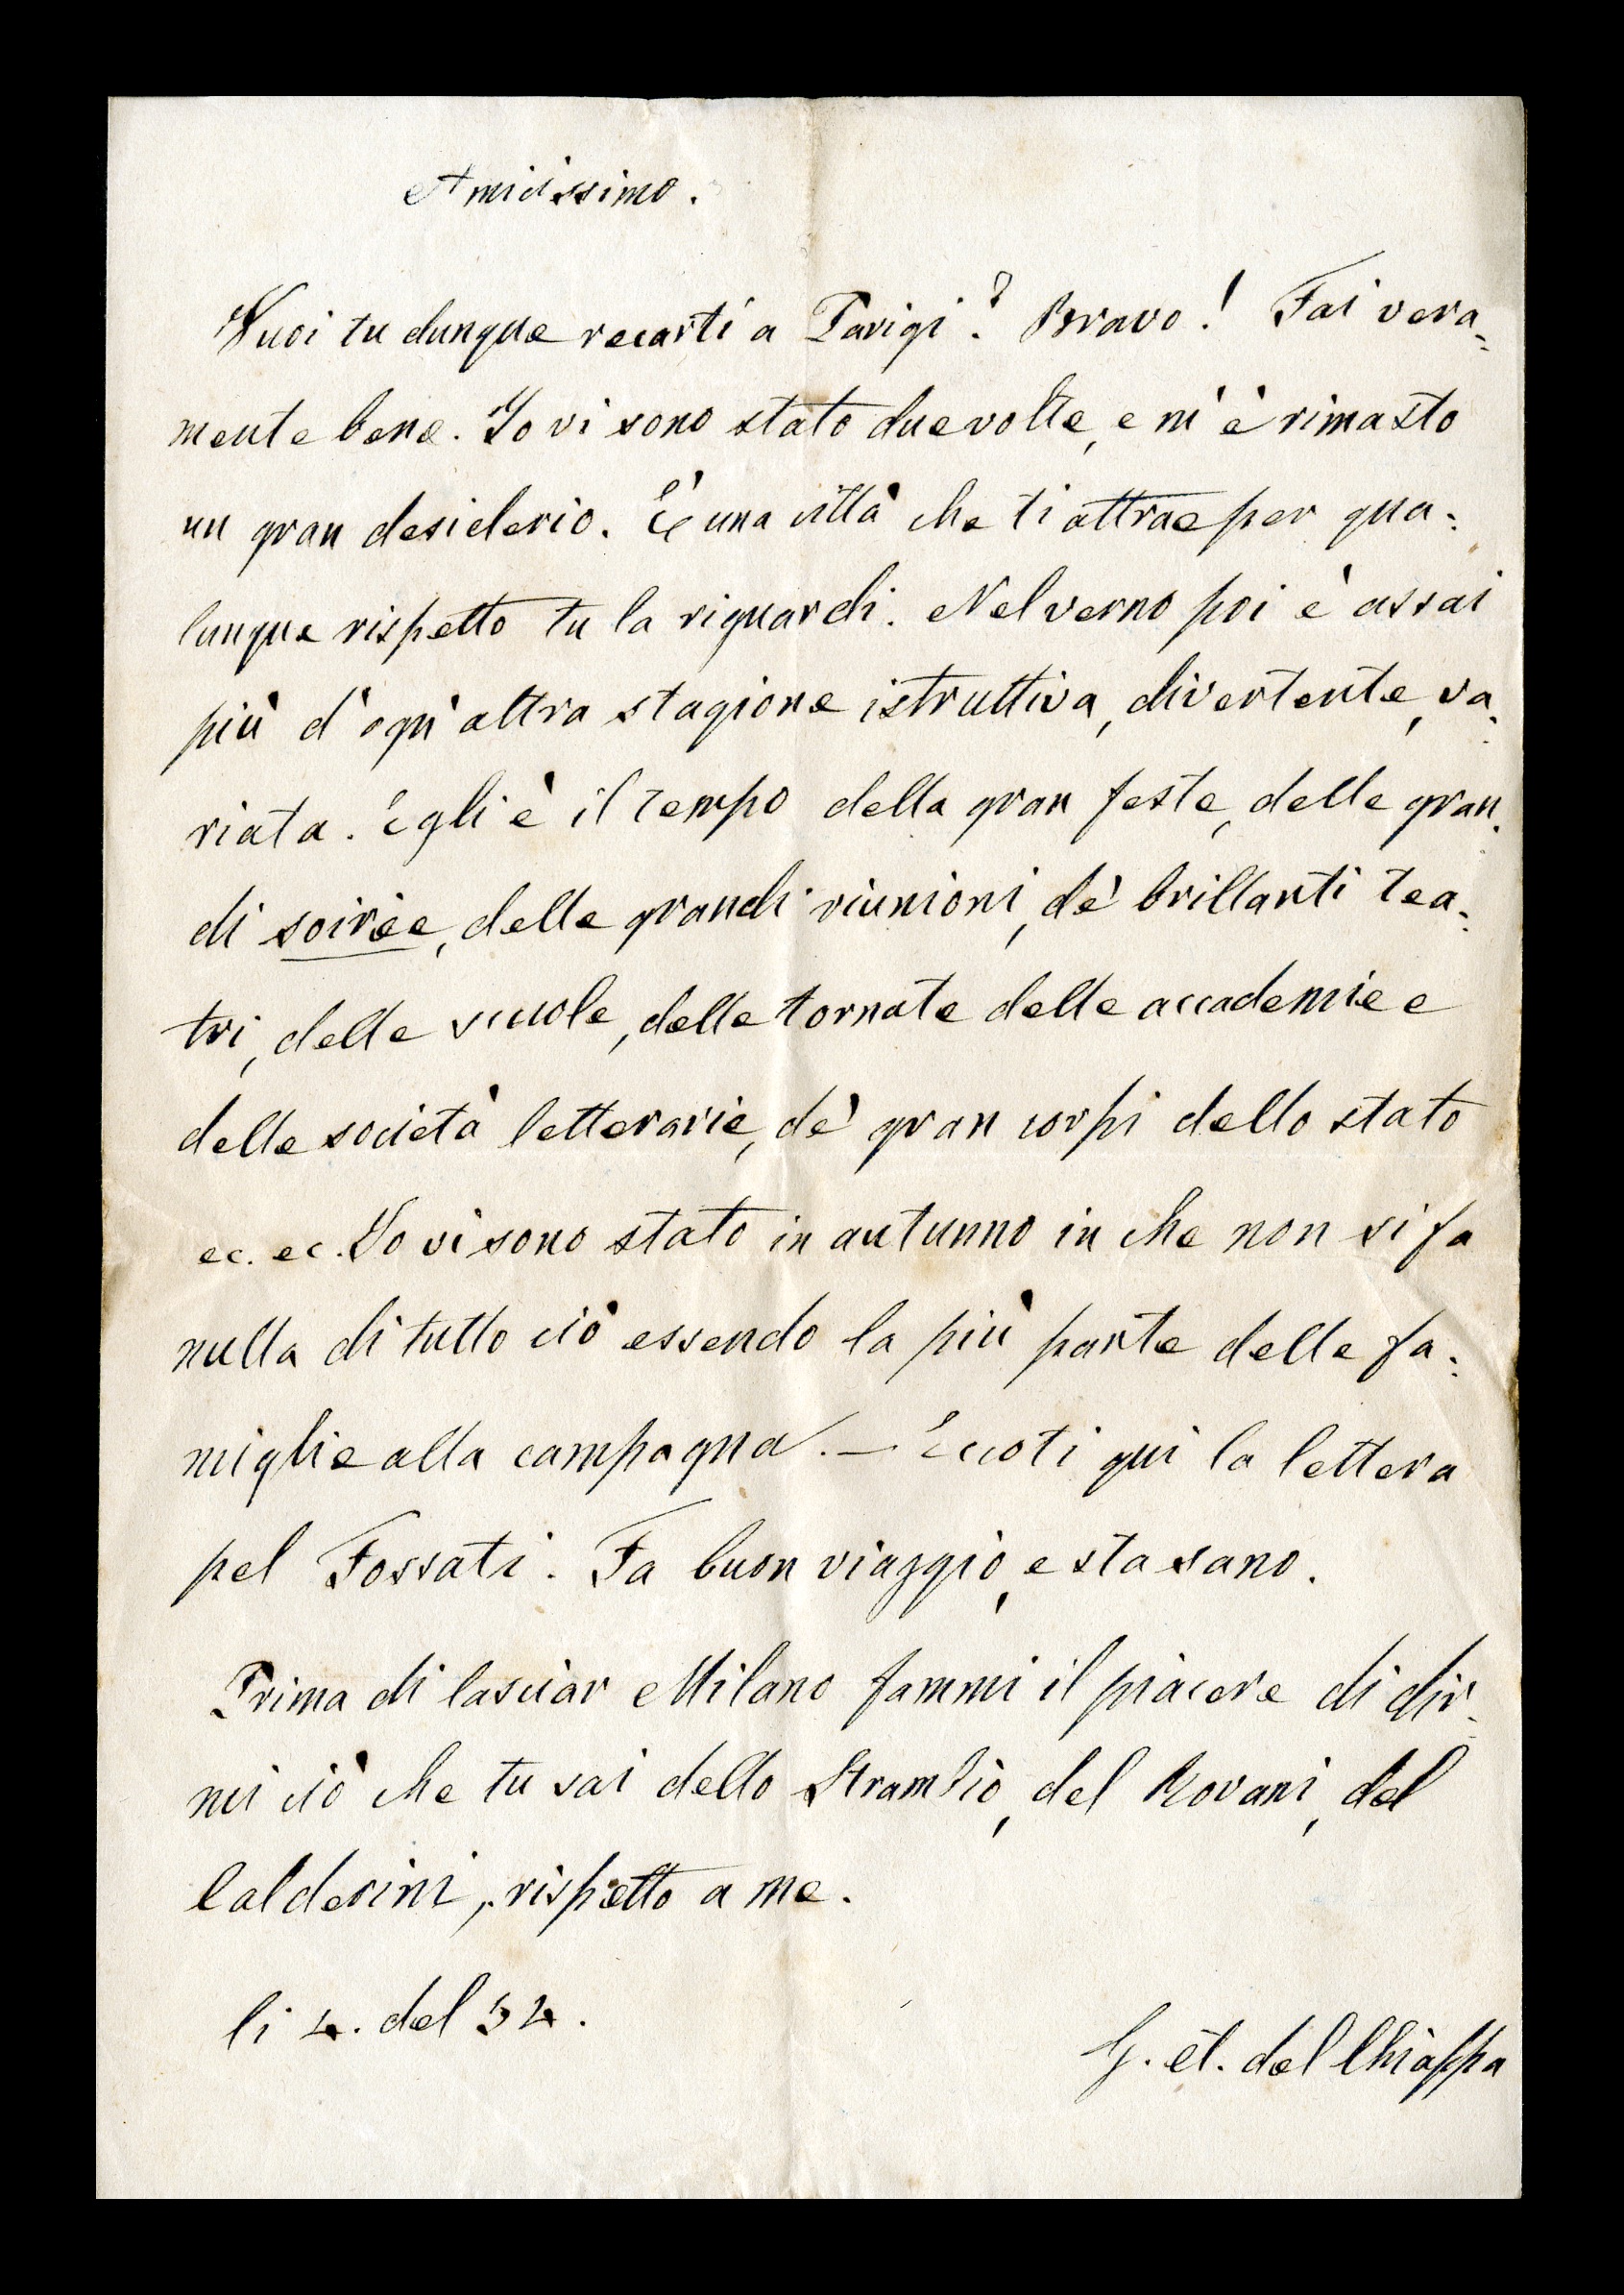 Amicissimo.
Vuoi tu dunque recarti a Parigi? Bravo! Fai vera=
mente bene. Io vi sono stato due volte, e m'è rimasto
un gran desiderio. È una città che ti attrae per qua=
lunque rispetto tu la riguardi. Nel verno poi è assai
più d'ogn'altra stagione istruttiva, divertente, va=
riata. Egli è il tempo delle gran feste, delle gran=
di soirée, delle grandi riunioni, de' brillanti tea=
tri, delle scuole, delle tornate delle accademie e
delle società letterarie, de' gran corpi dello stato
ec. ec. Io vi sono stato in autunno in che non si fa
nulla di tutto ciò essendo la più parte delle fa=
miglie alla campagna. — Eccoti qui la lettera
pel Fossati. Fa buon viaggio, e sta sano.
Prima di lasciar Milano fammi il piacere di dir=
mi ciò che tu sai dello Strambio, del Rovani, del
Calderini, rispetto a me.
li 4. del 54.
G. A. del Chiappa